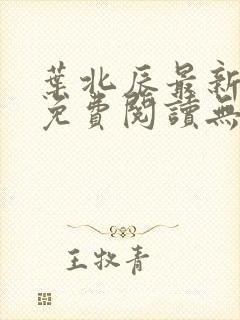 葉北辰最新
免費閱讀無
王牧青